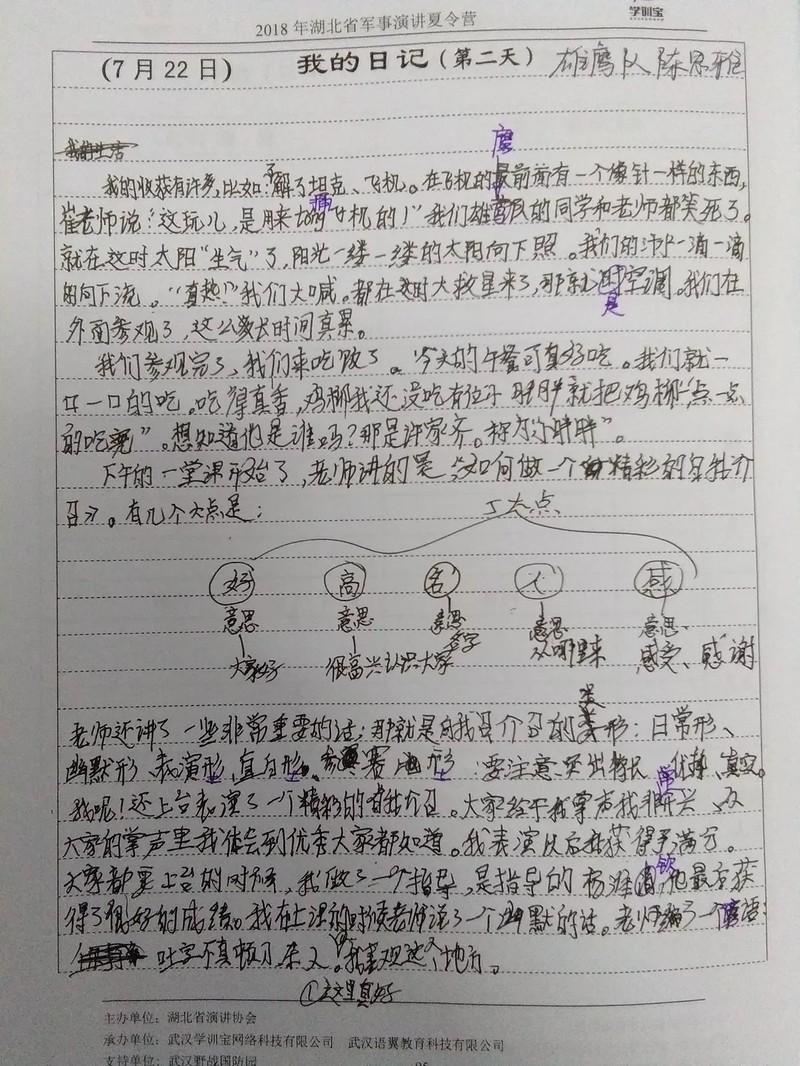 2018年湖北省军事演讲夏令营
学训宝
(7月22日) 我的日记(第二天) 雄鹰队 陈思雅
我的生活
我的收获有许多,比如:了解了坦克、飞机。在飞机的最前面有一个像针一样的东西,
崔老师说:"这玩儿,是用来 飞机的!"我们雄鹰队的同学和老师都笑死了。
就在这时太阳"生气"了,阳光一缕一缕的太阳向下照。我们的汗一滴一滴
的向下流。"真热!"我们大喊。都在这时大救星来了,那就是空调。我们在
外面参观了,这么长时间真累。
我们参观完了,我们来吃饭了。今天的午餐可真好吃。我们就一
口一口的吃。吃得真香,鸡柳我还没吃有位小胖胖就把鸡柳"一点一点
的吃完"。想知道他是谁吗?那是许家齐。称为"小胖胖"。
下午的一堂课开始了,老师讲的是《如何做一个精彩的自我介
召》。有几个大点是:
5大点
好 高 名 人 感
意思 意思 意思 意思 意思
大家好 很高兴认识大家 名字 从哪里来 感受、感谢
老师还讲了一些非常重要的话:那就是自我介召的类形:日常形、
幽默形、表演形,直白形、赛形 要注意突出特点、优静、真实。
我呢!还上台表演了一个精彩的自我介召。大家给于我掌声我非常开兴、从
大家的掌声里我体会到优秀大家都知道。我表演以后我获得了满分。
大家都要上台的时候,我做了一个指导,是指导的杨 钦他最后获
得了很好的成绩。我在上课的时候老师说了一个幽默的话。老师编了一个
吐字不真 刀,杀人。我喜观这个地方。
①这里真好
主办单位:湖北省演讲协会
承办单位:武汉学训宝网络科技有限公司 武汉语翼教育科技有限公司
支持单位:武汉野战国防园